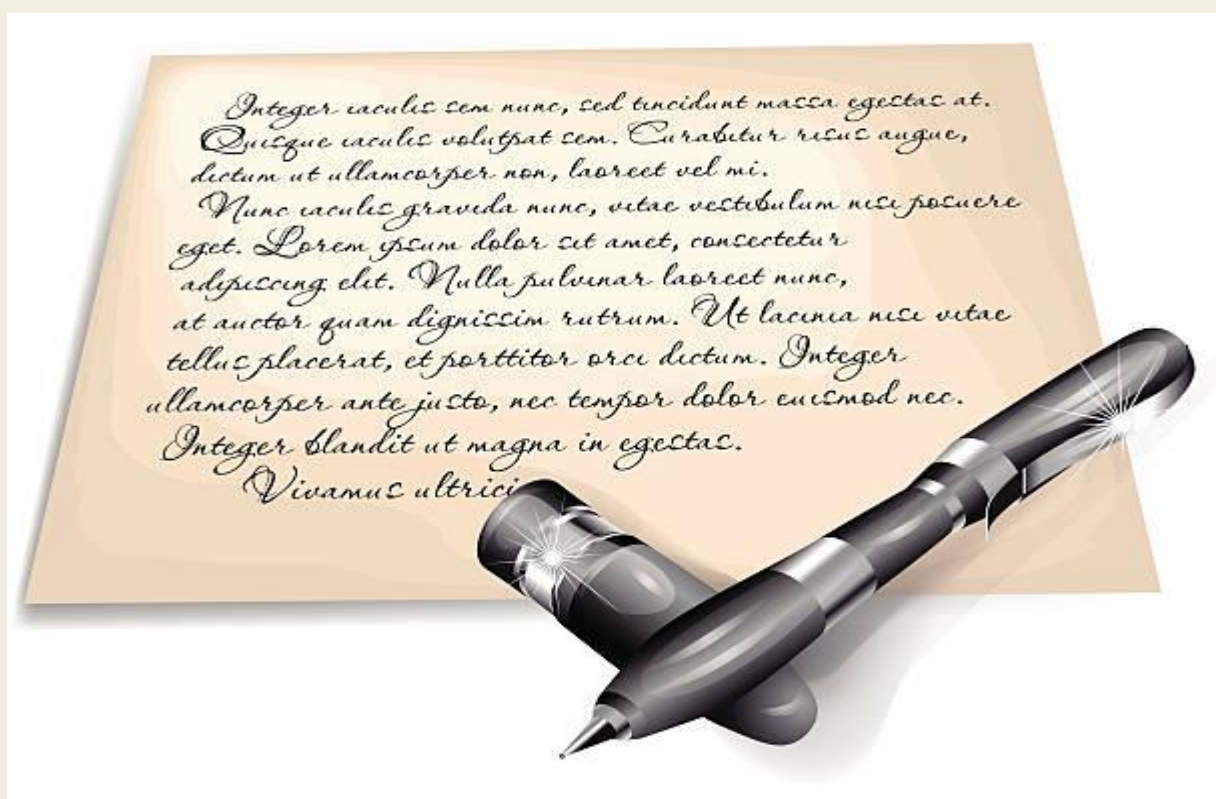 Integer iaculis sem nunc, sed tincidunt massa egestas at.
Quisque iaculis volutpat sem. Curabitur risus augue,
dictum ut ullamcorper non, laoreet vel mi.
Nunc iaculis gravida nunc, vitae vestibulum nisi posuere
eget. Lorem ipsum dolor sit amet, consectetur
adipiscing elit. Nulla pulvinar laoreet nunc,
at auctor quam dignissim rutrum. Ut lacinia nisi vitae
tellus placerat, et porttitor orci dictum. Integer
ullamcorper ante justo, nec tempor dolor euismod nec.
Integer blandit ut magna in egestas.
Vivamus ultrici